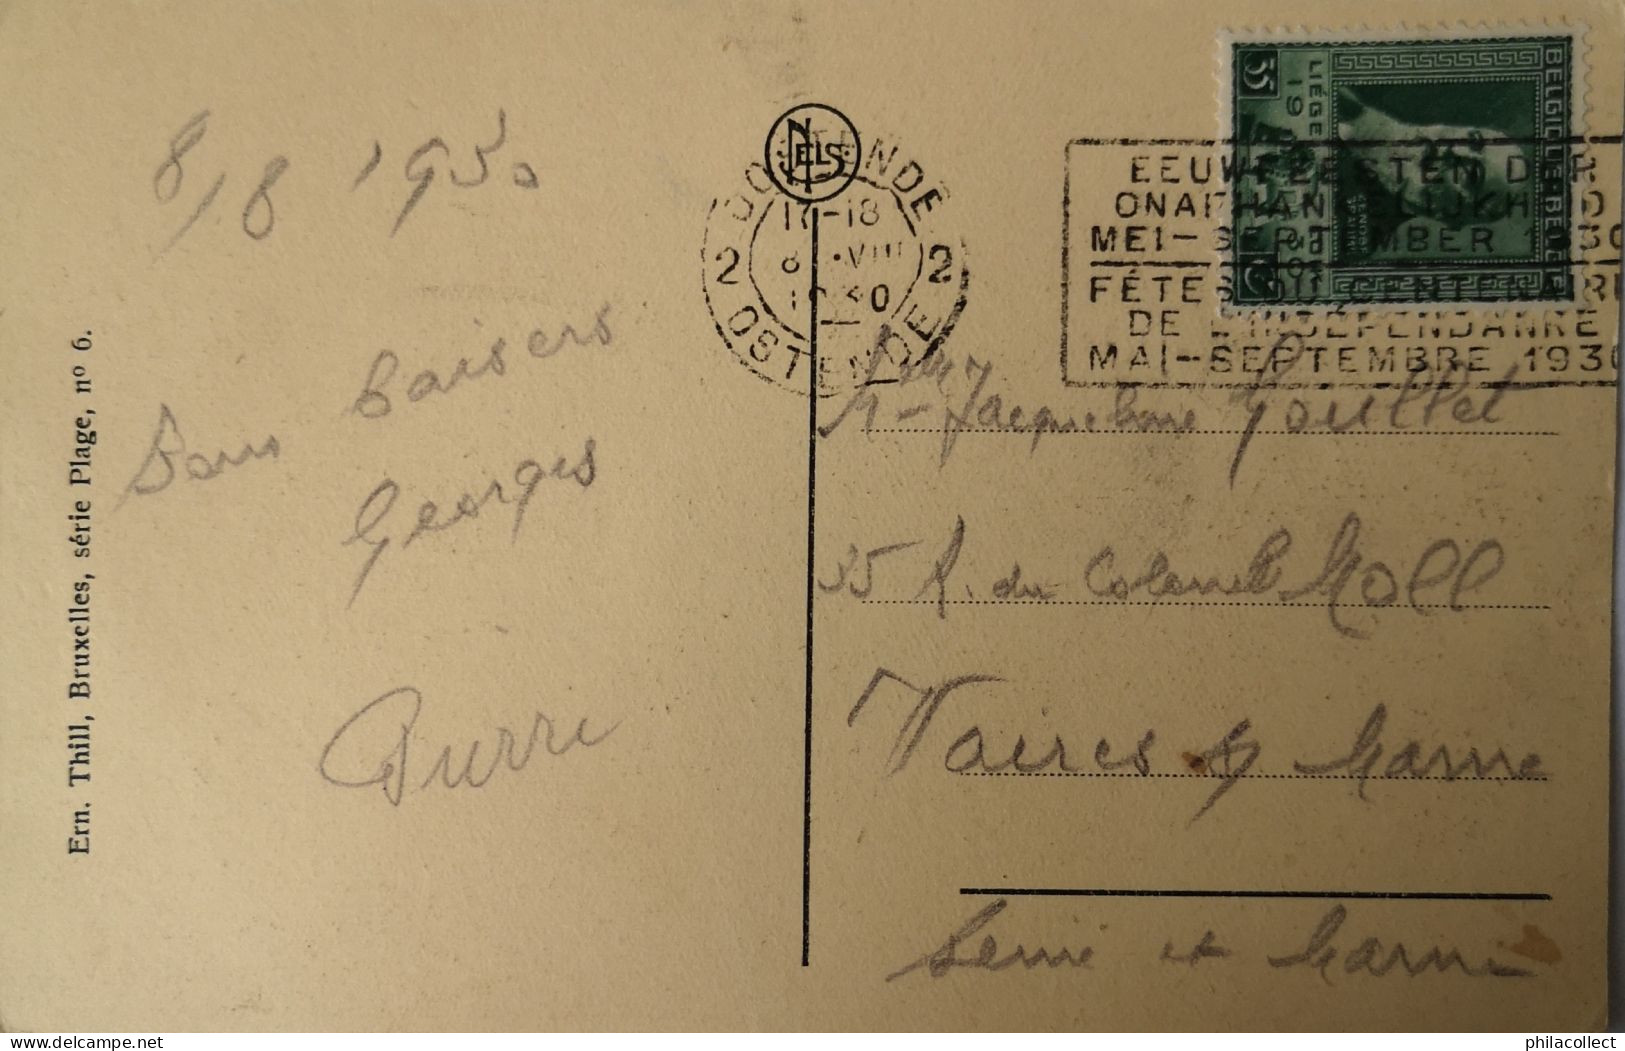 8/8 1930
Bons baisers
Georges
Pierre
Ern. Thill, Bruxelles, série Plage, nº 6.
NELS
OOSTENDE
17-18
8 VIII
1930
2 2
OSTENDE
BELGIQUE-BELGIË
LIÉGE 19
35
EEUWFEESTEN DER
ONAFHANKELIJKHEID
MEI-SEPTEMBER 1930
FÊTES DU CENTENAIRE
DE L'INDÉPENDANCE
MAI-SEPTEMBRE 1930
Jacqueline Gouillet
35 R. du Colonel Moll
Vaires s/ Marne
Seine et Marne
philacollect
www.delcampe.net